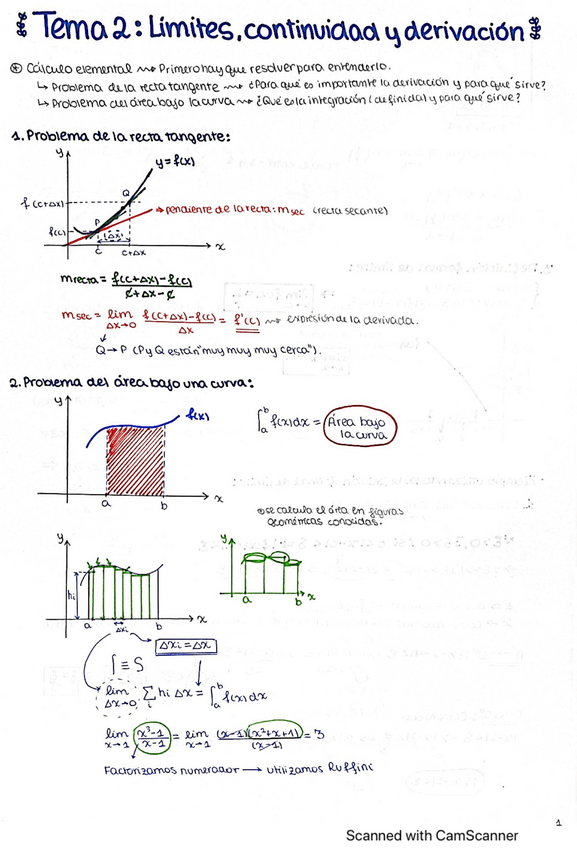 Tema 2: Límites, continuidad y derivación
⊛ Cálculo elemental ⇝ Primero hay que resolver para entenderlo.
↳ Problema de la recta tangente ⇝ ¿Para qué es importante la derivación y para qué sirve?
↳ Problema del área bajo la curva ⇝ ¿Qué es la integración (definida) y para qué sirve?
1. Problema de la recta tangente:
y
y=f(x)
f(c+Δx)
Q
pendiente de la recta: msec (recta secante)
f(c)
P
Δx
c
c+Δx
x
mrecta = f(c+Δx)-f(c) / c+Δx-c
msec = lim Δx→0 f(c+Δx)-f(c) / Δx = f'(c) ⇝ expresión de la derivada.
Q→P (P y Q están "muy muy muy cerca").
2. Problema del área bajo una curva:
y
f(x)
∫ₐᵇ f(x)dx = Área bajo
la curva
a
b
x
se calcula el área en figuras
geométricas conocidas.
y
y
hi
a
Δxi
b
x
a
b
x
Δxi = Δx
∫ ≡ S
lim Δx→0 Σ hi Δx = ∫ₐᵇ f(x)dx
lim x→1 x³-1 / x-1 = lim x→1 (x-1)(x²+x+1) / (x-1) = 3
Factorizamos numerador → utilizamos Ruffini
1
Scanned with CamScanner